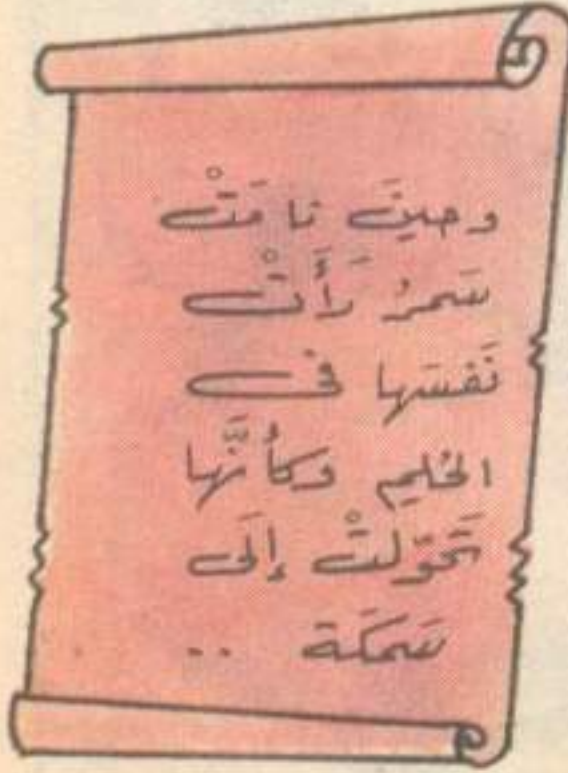 وحينَ نامَتْ
سَمرُ رَأَتْ
نَفسَها فى
الحُلمِ وكأنَّها
تَحَوّلتْ إلَى
سَمكَة ..